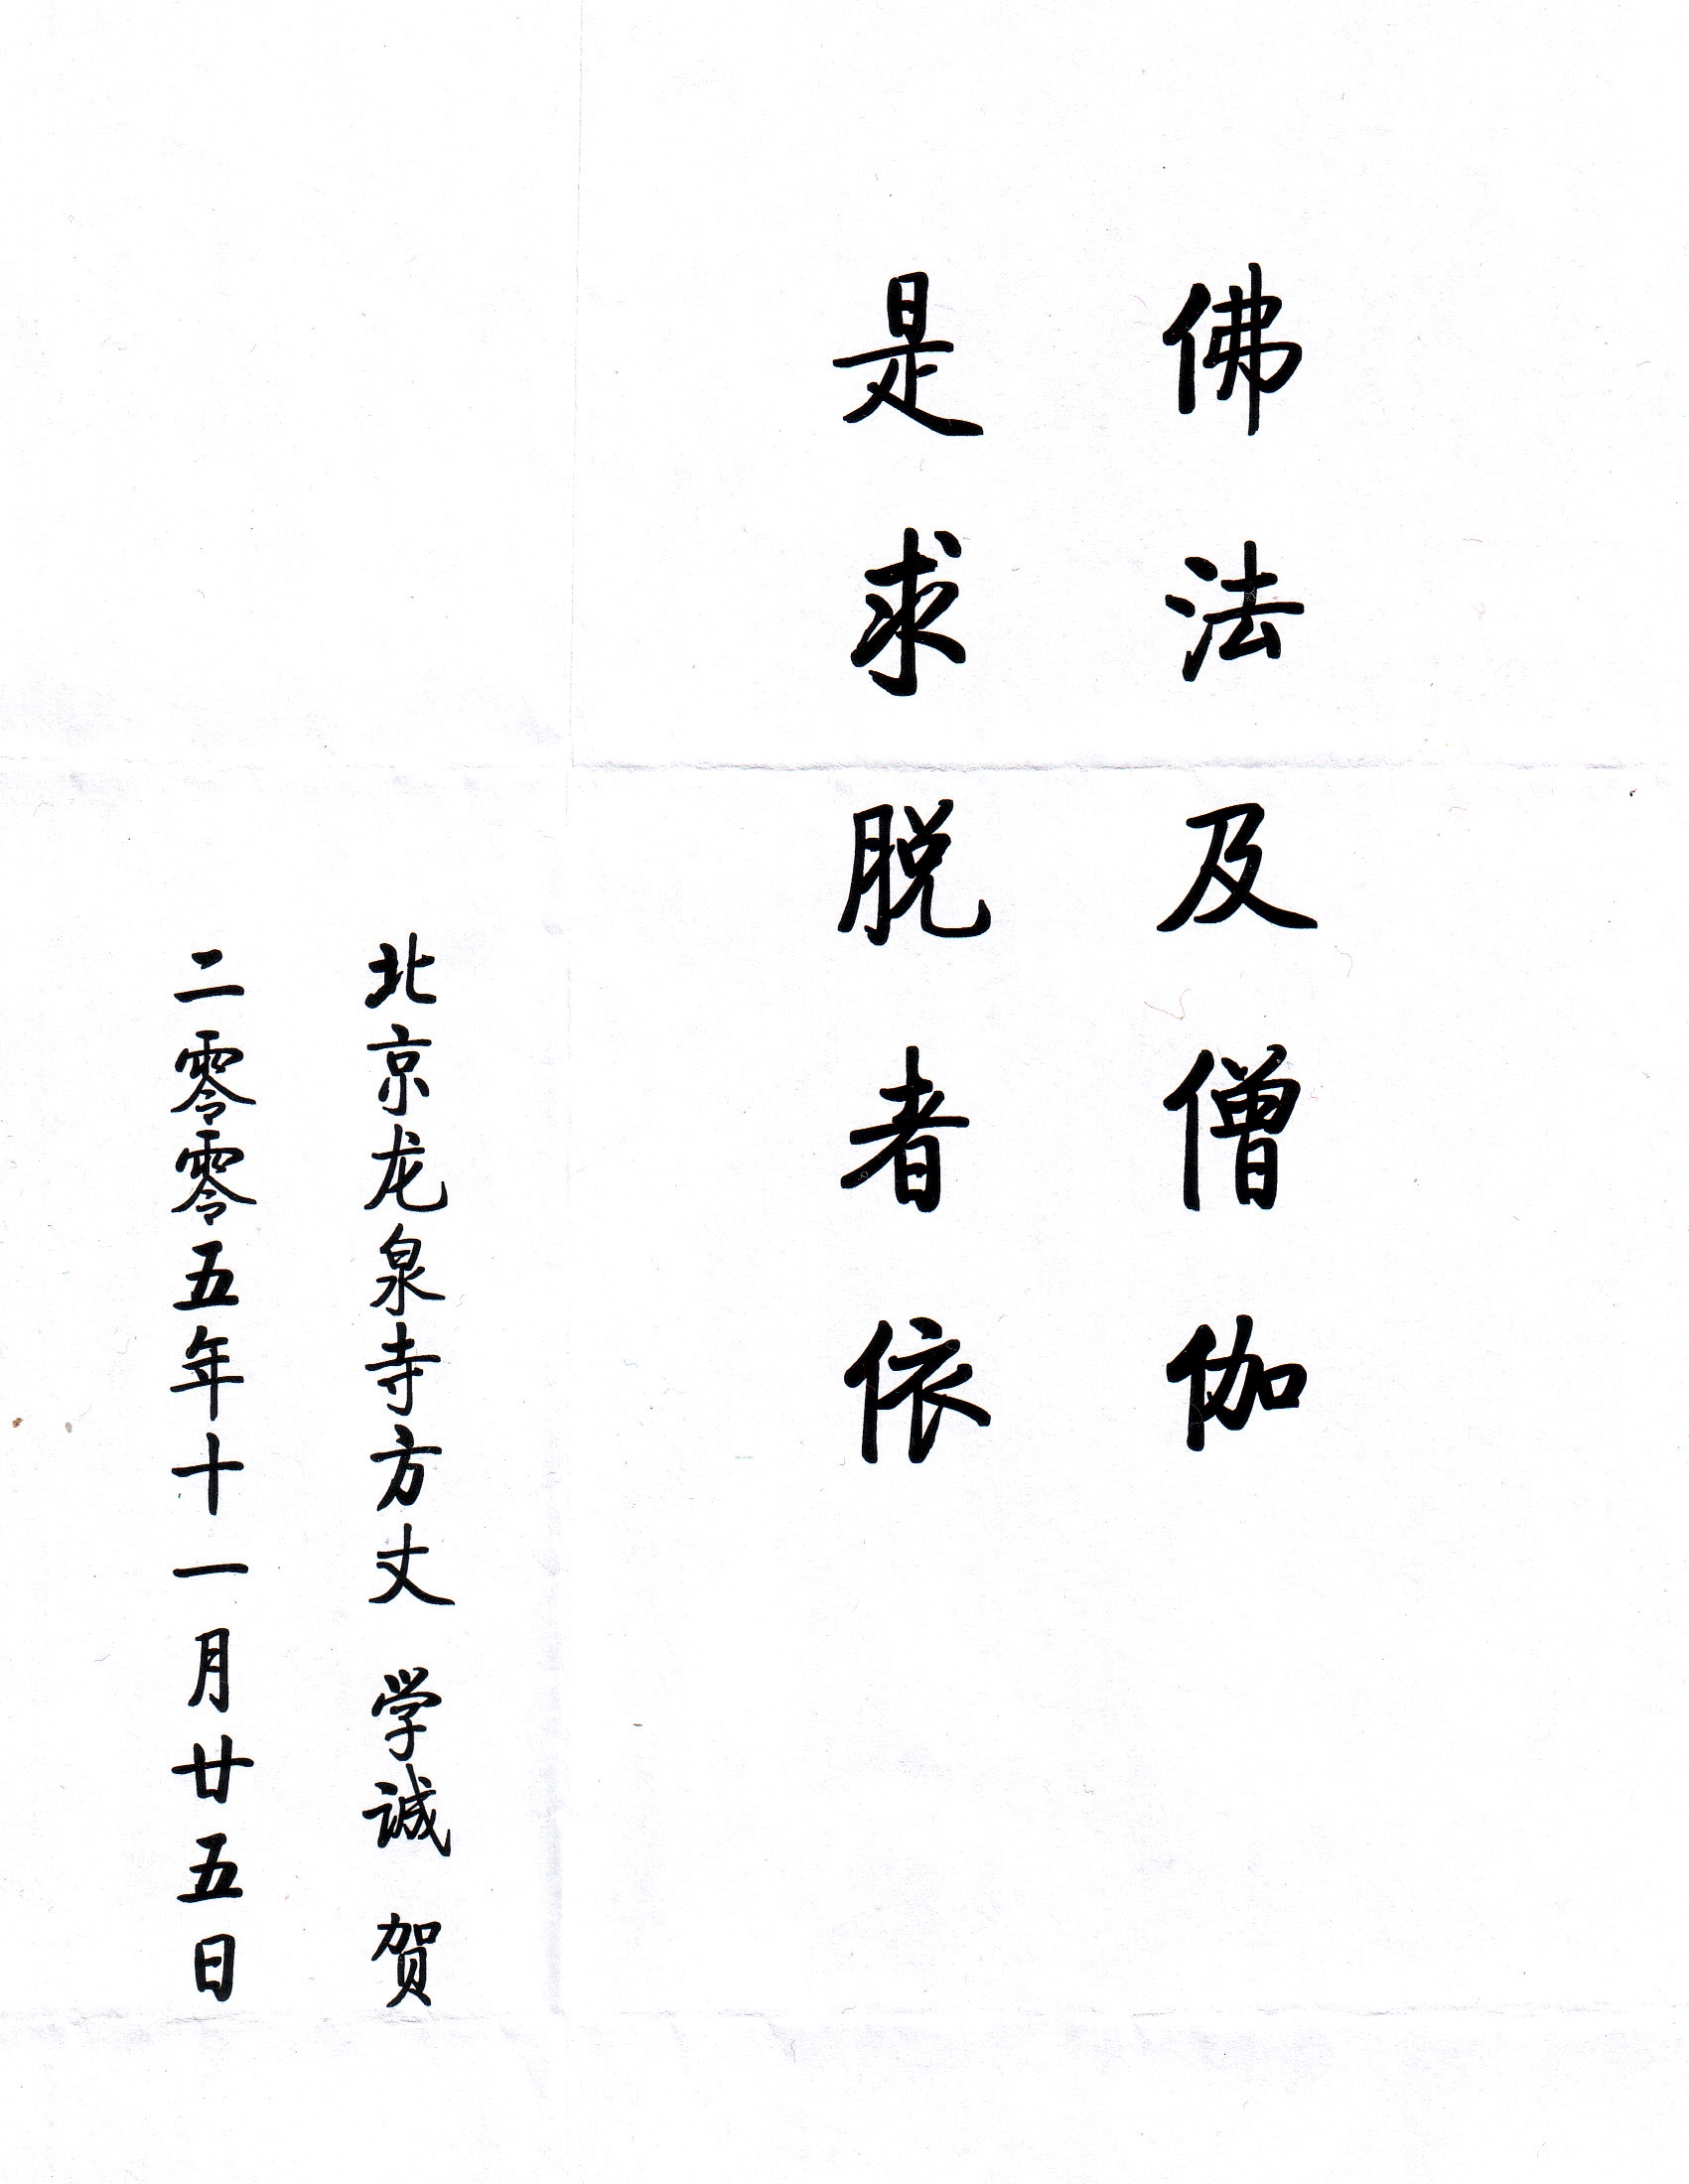 佛法及僧伽
是求脱者依
北京龙泉寺方丈 学诚 贺
二零零五年十一月廿五日